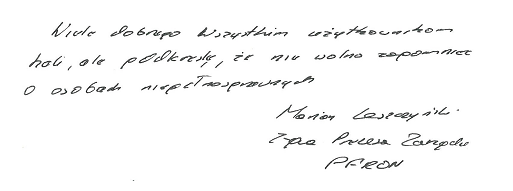 Wiele dobrego wszystkim użytkownikom
hali, ale podkreślę, że nie wolno zapomnieć
o osobach niepełnosprawnych
Marian Leszczyński
Z-ca Prezesa Zarządu
PFRON